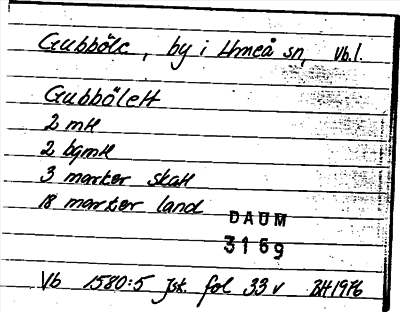 Gubböle, by i Umeå sn, Vb.l.
Gubbölett
2 mtt
2 bgmtt
3 marker skatt
18 marker land
DAUM
3169
Vb 1580:5 Jsk. fol 33 v BH 1976